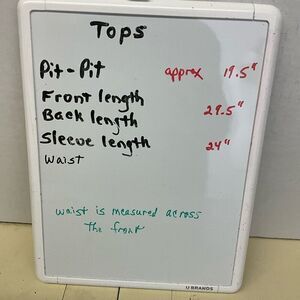 Tops
Pit-Pit approx 19.5"
Front length
Back length 29.5"
Sleeve length 24"
Waist
waist is measured across
The front
U BRANDS